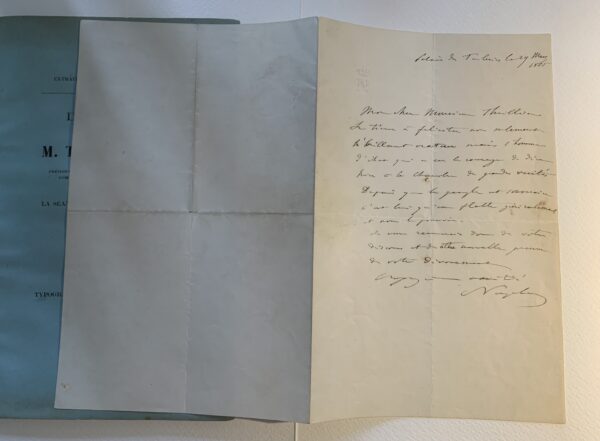 EXTRAI
L
M. T
LA SÉA
TYPOGR
Palais des Tuileries le 29 Mars
1865
Mon cher Monsieur Thuillier
Je tiens à féliciter non seulement
le brillant orateur mais l'homme
d'état qui a eu le courage de dire
à la chambre de grandes vérités
Depuis que le peuple est souverain
c'est lui qu'on flatte généralement
et non le pouvoir.
Je vous remercie donc de votre
discours et de cette nouvelle preuve
de votre dévouement
Croyez à mon amitié
Napoléon